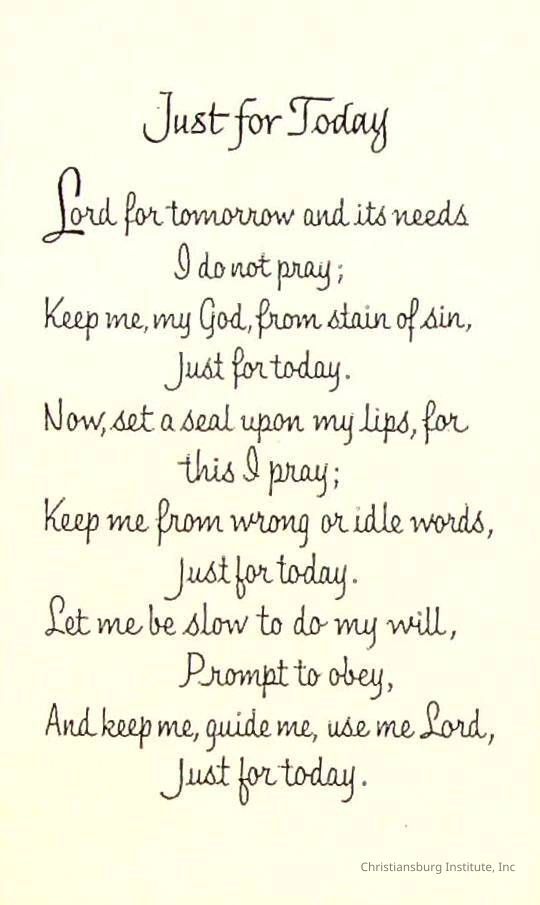 Just for Today
Lord for tomorrow and its needs
I do not pray;
Keep me, my God, from stain of sin,
Just for today.
Now, set a seal upon my lips, for
this I pray;
Keep me from wrong or idle words,
Just for today.
Let me be slow to do my will,
Prompt to obey,
And keep me, guide me, use me Lord,
Just for today.
Christiansburg Institute, Inc